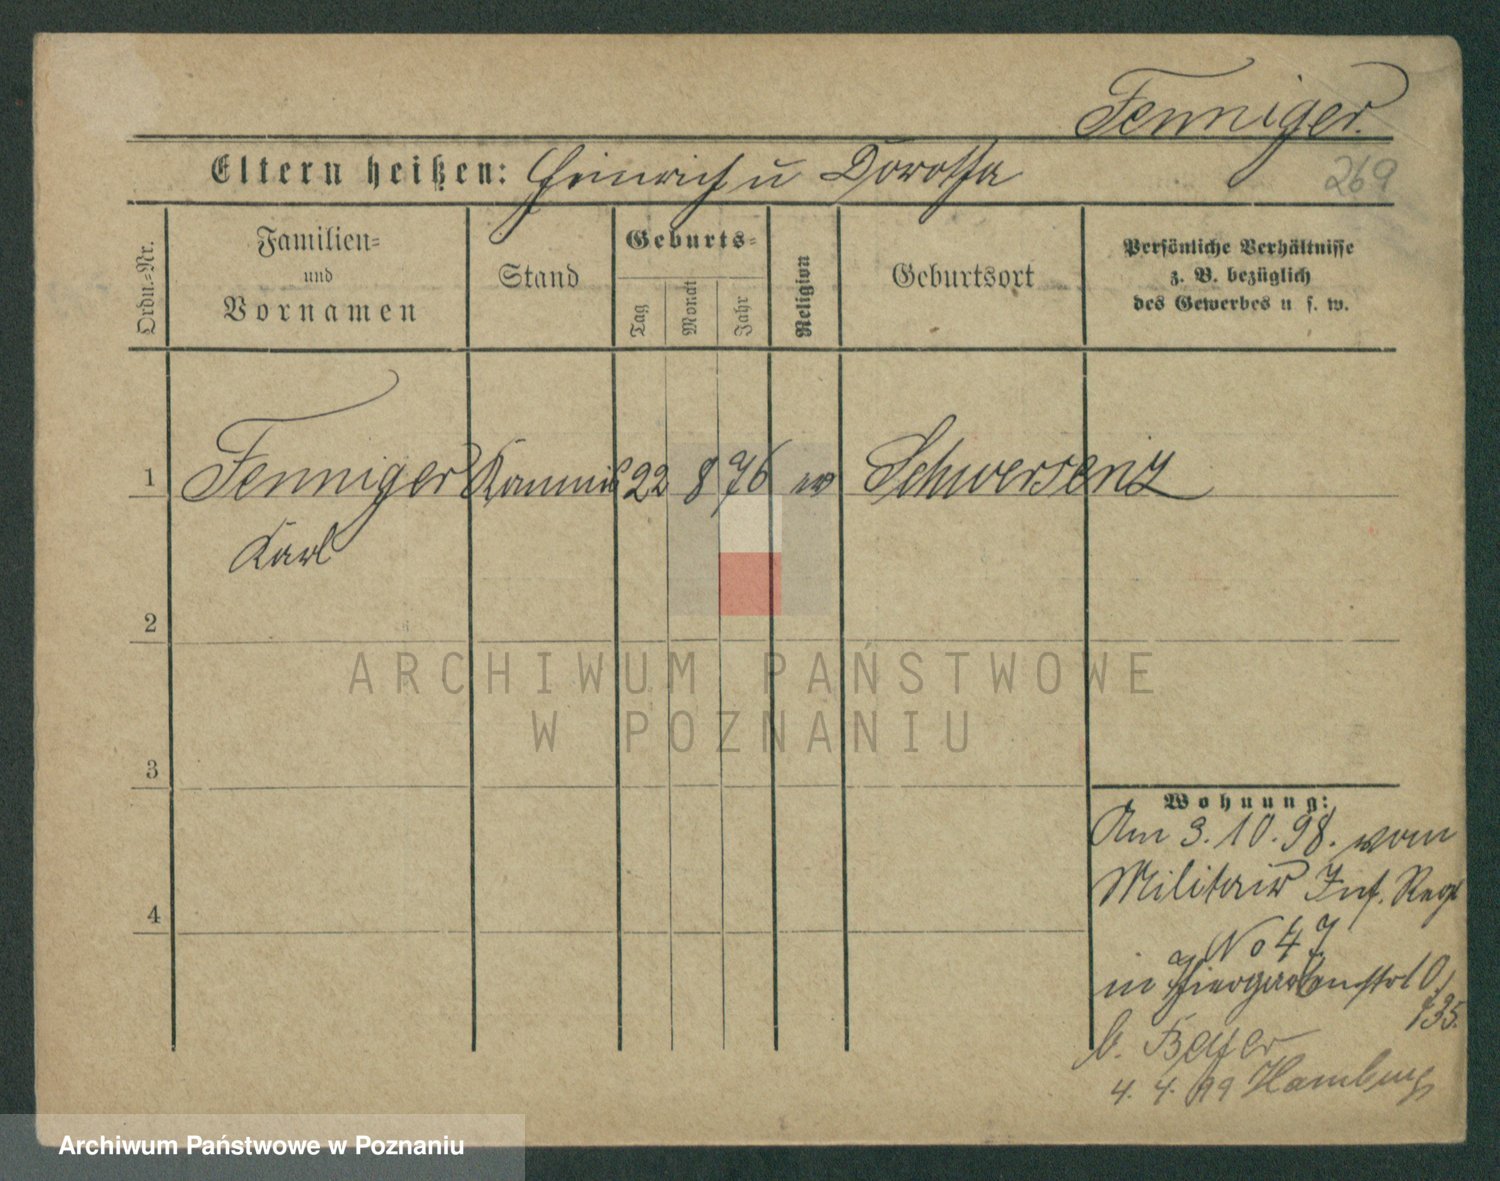 Fenniger.
269
Eltern heißen: Heinrich u Dorothea
Ordn.-Nr.
Familien-
und
Vornamen
Stand
Geburts-
Tag
Monat
Jahr
Religion
Geburtsort
Persönliche Verhältnisse
z. B. bezüglich
des Gewerbes u s. w.
1 Fenniger Kommis 22 8 76 ev Schwersenz
Karl
2
3
4
Wohnung:
Am 3.10.98. vom
Militair Inf. Regt
No 47
in 10/
735.
b. Beyer
4. 4. 99 Hamburg
ARCHIWUM PAŃSTWOWE
W POZNANIU
Archiwum Państwowe w Poznaniu